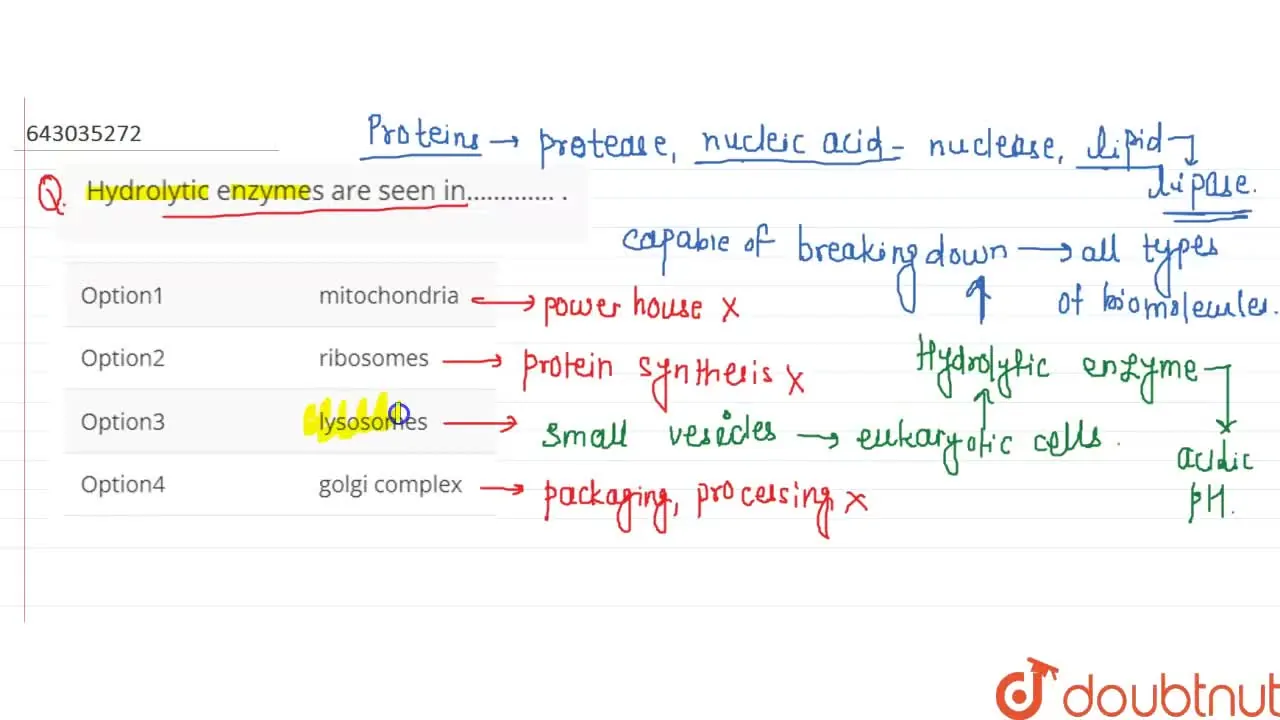 643035272
Proteins → protease, nucleic acid - nuclease, lipid
lipase.
Q. Hydrolytic enzymes are seen in............. .
capable of breaking down → all types
of biomolecules.
Option1 mitochondria → power house x
Option2 ribosomes → protein synthesis x
Hydrolytic enzyme
Option3 lysosomes → small vesicles → eukaryotic cells.
acidic
pH.
Option4 golgi complex → packaging, processing x
doubtnut